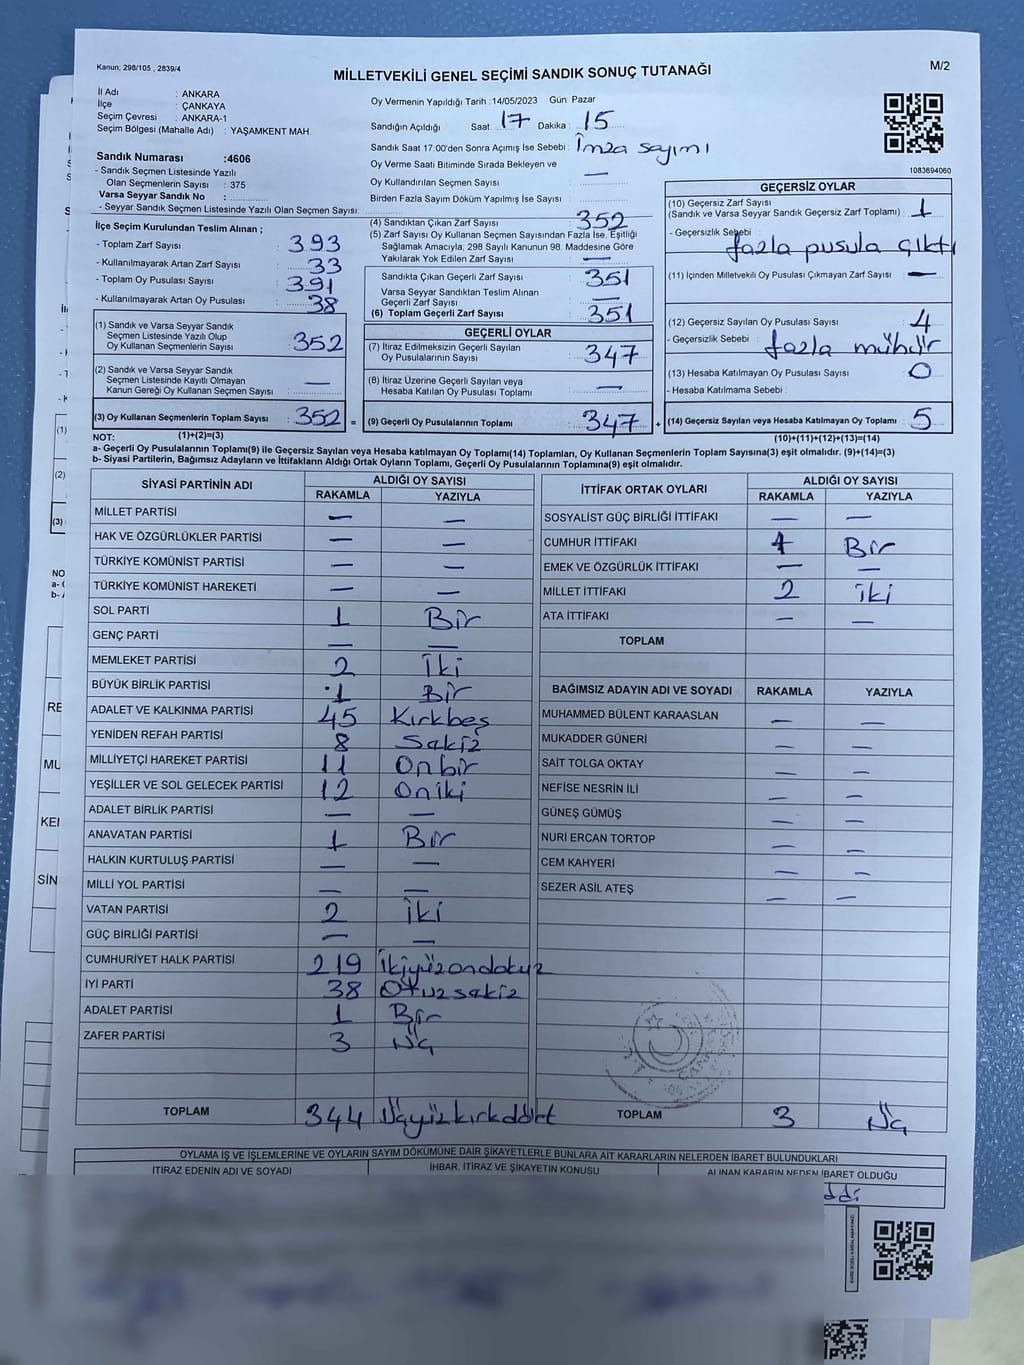 Kanun; 298/105 , 2839/4
MİLLETVEKİLİ GENEL SEÇİMİ SANDIK SONUÇ TUTANAĞI
M/2
İl Adı : ANKARA
İlçe : ÇANKAYA
Seçim Çevresi : ANKARA-1
Seçim Bölgesi (Mahalle Adı) : YAŞAMKENT MAH.
Sandık Numarası :4606
- Sandık Seçmen Listesinde Yazılı
Olan Seçmenlerin Sayısı : 375
Varsa Seyyar Sandık No :
- Seyyar Sandık Seçmen Listesinde Yazılı Olan Seçmen Sayısı:
Oy Vermenin Yapıldığı Tarih :14/05/2023 Gün: Pazar
Sandığın Açıldığı Saat: 17 Dakika : 15
Sandık Saat 17:00'den Sonra Açımış İse Sebebi : İmza sayımı
Oy Verme Saati Bitiminde Sırada Bekleyen ve
Oy Kullandırılan Seçmen Sayısı : —
Birden Fazla Sayım Döküm Yapılmış İse Sayısı :
1083694060
İlçe Seçim Kurulundan Teslim Alınan ;
- Toplam Zarf Sayısı : 393
- Kullanılmayarak Artan Zarf Sayısı : 33
- Toplam Oy Pusulası Sayısı : 391
- Kullanılmayarak Artan Oy Pusulası : 38
(1) Sandık ve Varsa Seyyar Sandık
Seçmen Listesinde Yazılı Olup
Oy Kullanan Seçmenlerin Sayısı : 352
(2) Sandık ve Varsa Seyyar Sandık
Seçmen Listesinde Kayıtlı Olmayan
Kanun Gereği Oy Kullanan Seçmen Sayısı : —
(3) Oy Kullanan Seçmenlerin Toplam Sayısı : 352 =
(1)+(2)=(3)
(4) Sandıktan Çıkan Zarf Sayısı : 352
(5) Zarf Sayısı Oy Kullanan Seçmen Sayısından Fazla İse, Eşitliği
Sağlamak Amacıyla; 298 Sayılı Kanunun 98. Maddesine Göre
Yakılarak Yok Edilen Zarf Sayısı : —
Sandıkta Çıkan Geçerli Zarf Sayısı : 351
Varsa Seyyar Sandıktan Teslim Alınan
Geçerli Zarf Sayısı : —
(6) Toplam Geçerli Zarf Sayısı : 351
GEÇERLİ OYLAR
(7) İtiraz Edilmeksizin Geçerli Sayılan
Oy Pusulalarının Sayısı : 347
(8) İtiraz Üzerine Geçerli Sayılan veya
Hesaba Katılan Oy Pusulası Toplamı : —
(9) Geçerli Oy Pusulalarının Toplamı : 347 +
GEÇERSİZ OYLAR
(10) Geçersiz Zarf Sayısı
(Sandık ve Varsa Seyyar Sandık Geçersiz Zarf Toplamı) : 1
- Geçersizlik Sebebi : fazla pusula çıktı
(11) İçinden Milletvekili Oy Pusulası Çıkmayan Zarf Sayısı : —
(12) Geçersiz Sayılan Oy Pusulası Sayısı : 4
- Geçersizlik Sebebi : fazla mühür
(13) Hesaba Katılmayan Oy Pusulası Sayısı : 0
- Hesaba Katılmama Sebebi :
(14) Geçersiz Sayılan veya Hesaba Katılmayan Oy Toplamı : 5
(10)+(11)+(12)+(13)=(14)
NOT:
a- Geçerli Oy Pusulalarının Toplamı(9) ile Geçersiz Sayılan veya Hesaba katılmayan Oy Toplamı(14) Toplamları, Oy Kullanan Seçmenlerin Toplam Sayısına(3) eşit olmalıdır. (9)+(14)=(3)
b- Siyasi Partilerin, Bağımsız Adayların ve İttifakların Aldığı Ortak Oyların Toplamı, Geçerli Oy Pusulalarının Toplamına(9) eşit olmalıdır.
SİYASİ PARTİNİN ADI ALDIĞI OY SAYISI
RAKAMLA YAZIYLA
MİLLET PARTİSİ — —
HAK VE ÖZGÜRLÜKLER PARTİSİ — —
TÜRKİYE KOMÜNİST PARTİSİ — —
TÜRKİYE KOMÜNİST HAREKETİ — —
SOL PARTİ 1 Bir
GENÇ PARTİ — —
MEMLEKET PARTİSİ 2 İki
BÜYÜK BİRLİK PARTİSİ 1 Bir
ADALET VE KALKINMA PARTİSİ 45 Kırkbeş
YENİDEN REFAH PARTİSİ 8 Sakiz
MİLLİYETÇİ HAREKET PARTİSİ 11 Onbir
YEŞİLLER VE SOL GELECEK PARTİSİ 12 Oniki
ADALET BİRLİK PARTİSİ — —
ANAVATAN PARTİSİ 1 Bir
HALKIN KURTULUŞ PARTİSİ — —
MİLLİ YOL PARTİSİ — —
VATAN PARTİSİ 2 İki
GÜÇ BİRLİĞİ PARTİSİ — —
CUMHURİYET HALK PARTİSİ 219 İkiyüzondokuz
İYİ PARTİ 38 Otuzsakiz
ADALET PARTİSİ 1 Bir
ZAFER PARTİSİ 3 Üç
TOPLAM 344 Üçyüzkırkdört
İTTİFAK ORTAK OYLARI ALDIĞI OY SAYISI
RAKAMLA YAZIYLA
SOSYALİST GÜÇ BİRLİĞİ İTTİFAKI — —
CUMHUR İTTİFAKI 1 Bir
EMEK VE ÖZGÜRLÜK İTTİFAKI — —
MİLLET İTTİFAKI 2 iki
ATA İTTİFAKI — —
TOPLAM
BAĞIMSIZ ADAYIN ADI VE SOYADI RAKAMLA YAZIYLA
MUHAMMED BÜLENT KARAASLAN — —
MUKADDER GÜNERİ — —
SAİT TOLGA OKTAY — —
NEFİSE NESRİN İLİ — —
GÜNEŞ GÜMÜŞ — —
NURİ ERCAN TORTOP — —
CEM KAHYERİ — —
SEZER ASİL ATEŞ — —
TOPLAM 3 Üç
OYLAMA İŞ VE İŞLEMLERİNE VE OYLARIN SAYIM DÖKÜMÜNE DAİR ŞİKAYETLERLE BUNLARA AİT KARARLARIN NELERDEN İBARET BULUNDUKLARI
İTİRAZ EDENİN ADI VE SOYADI İHBAR, İTİRAZ VE ŞİKAYETİN KONUSU ALINAN KARARIN NEDEN İBARET OLDUĞU